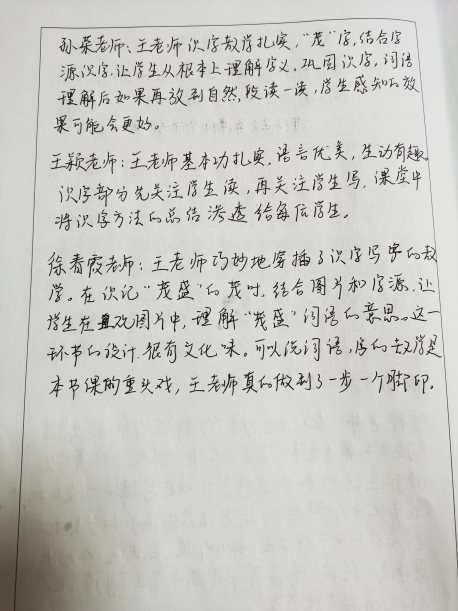 孙荣老师：王老师识字教学扎实，“茂”字，结合字
源识字，让学生从根本上理解字义，巩固识字，词语
理解后如果再放到自然段读一读，学生感知的效
果可能会更好。
王颖老师：王老师基本功扎实，语言优美，生动有趣。
识字部分先关注学生读，再关注学生写，课堂中
将识字方法的总结渗透给每位学生。
徐春霞老师：王老师巧妙地穿插了识字写字的教
学。在识记“茂盛”的茂时，结合图片和字源，让
学生在直观图片中，理解“茂盛”词语的意思。这一
环节的设计，很有文化味。可以说词语，字的教学是
本节课的重头戏，王老师真的做到了一步一个脚印。